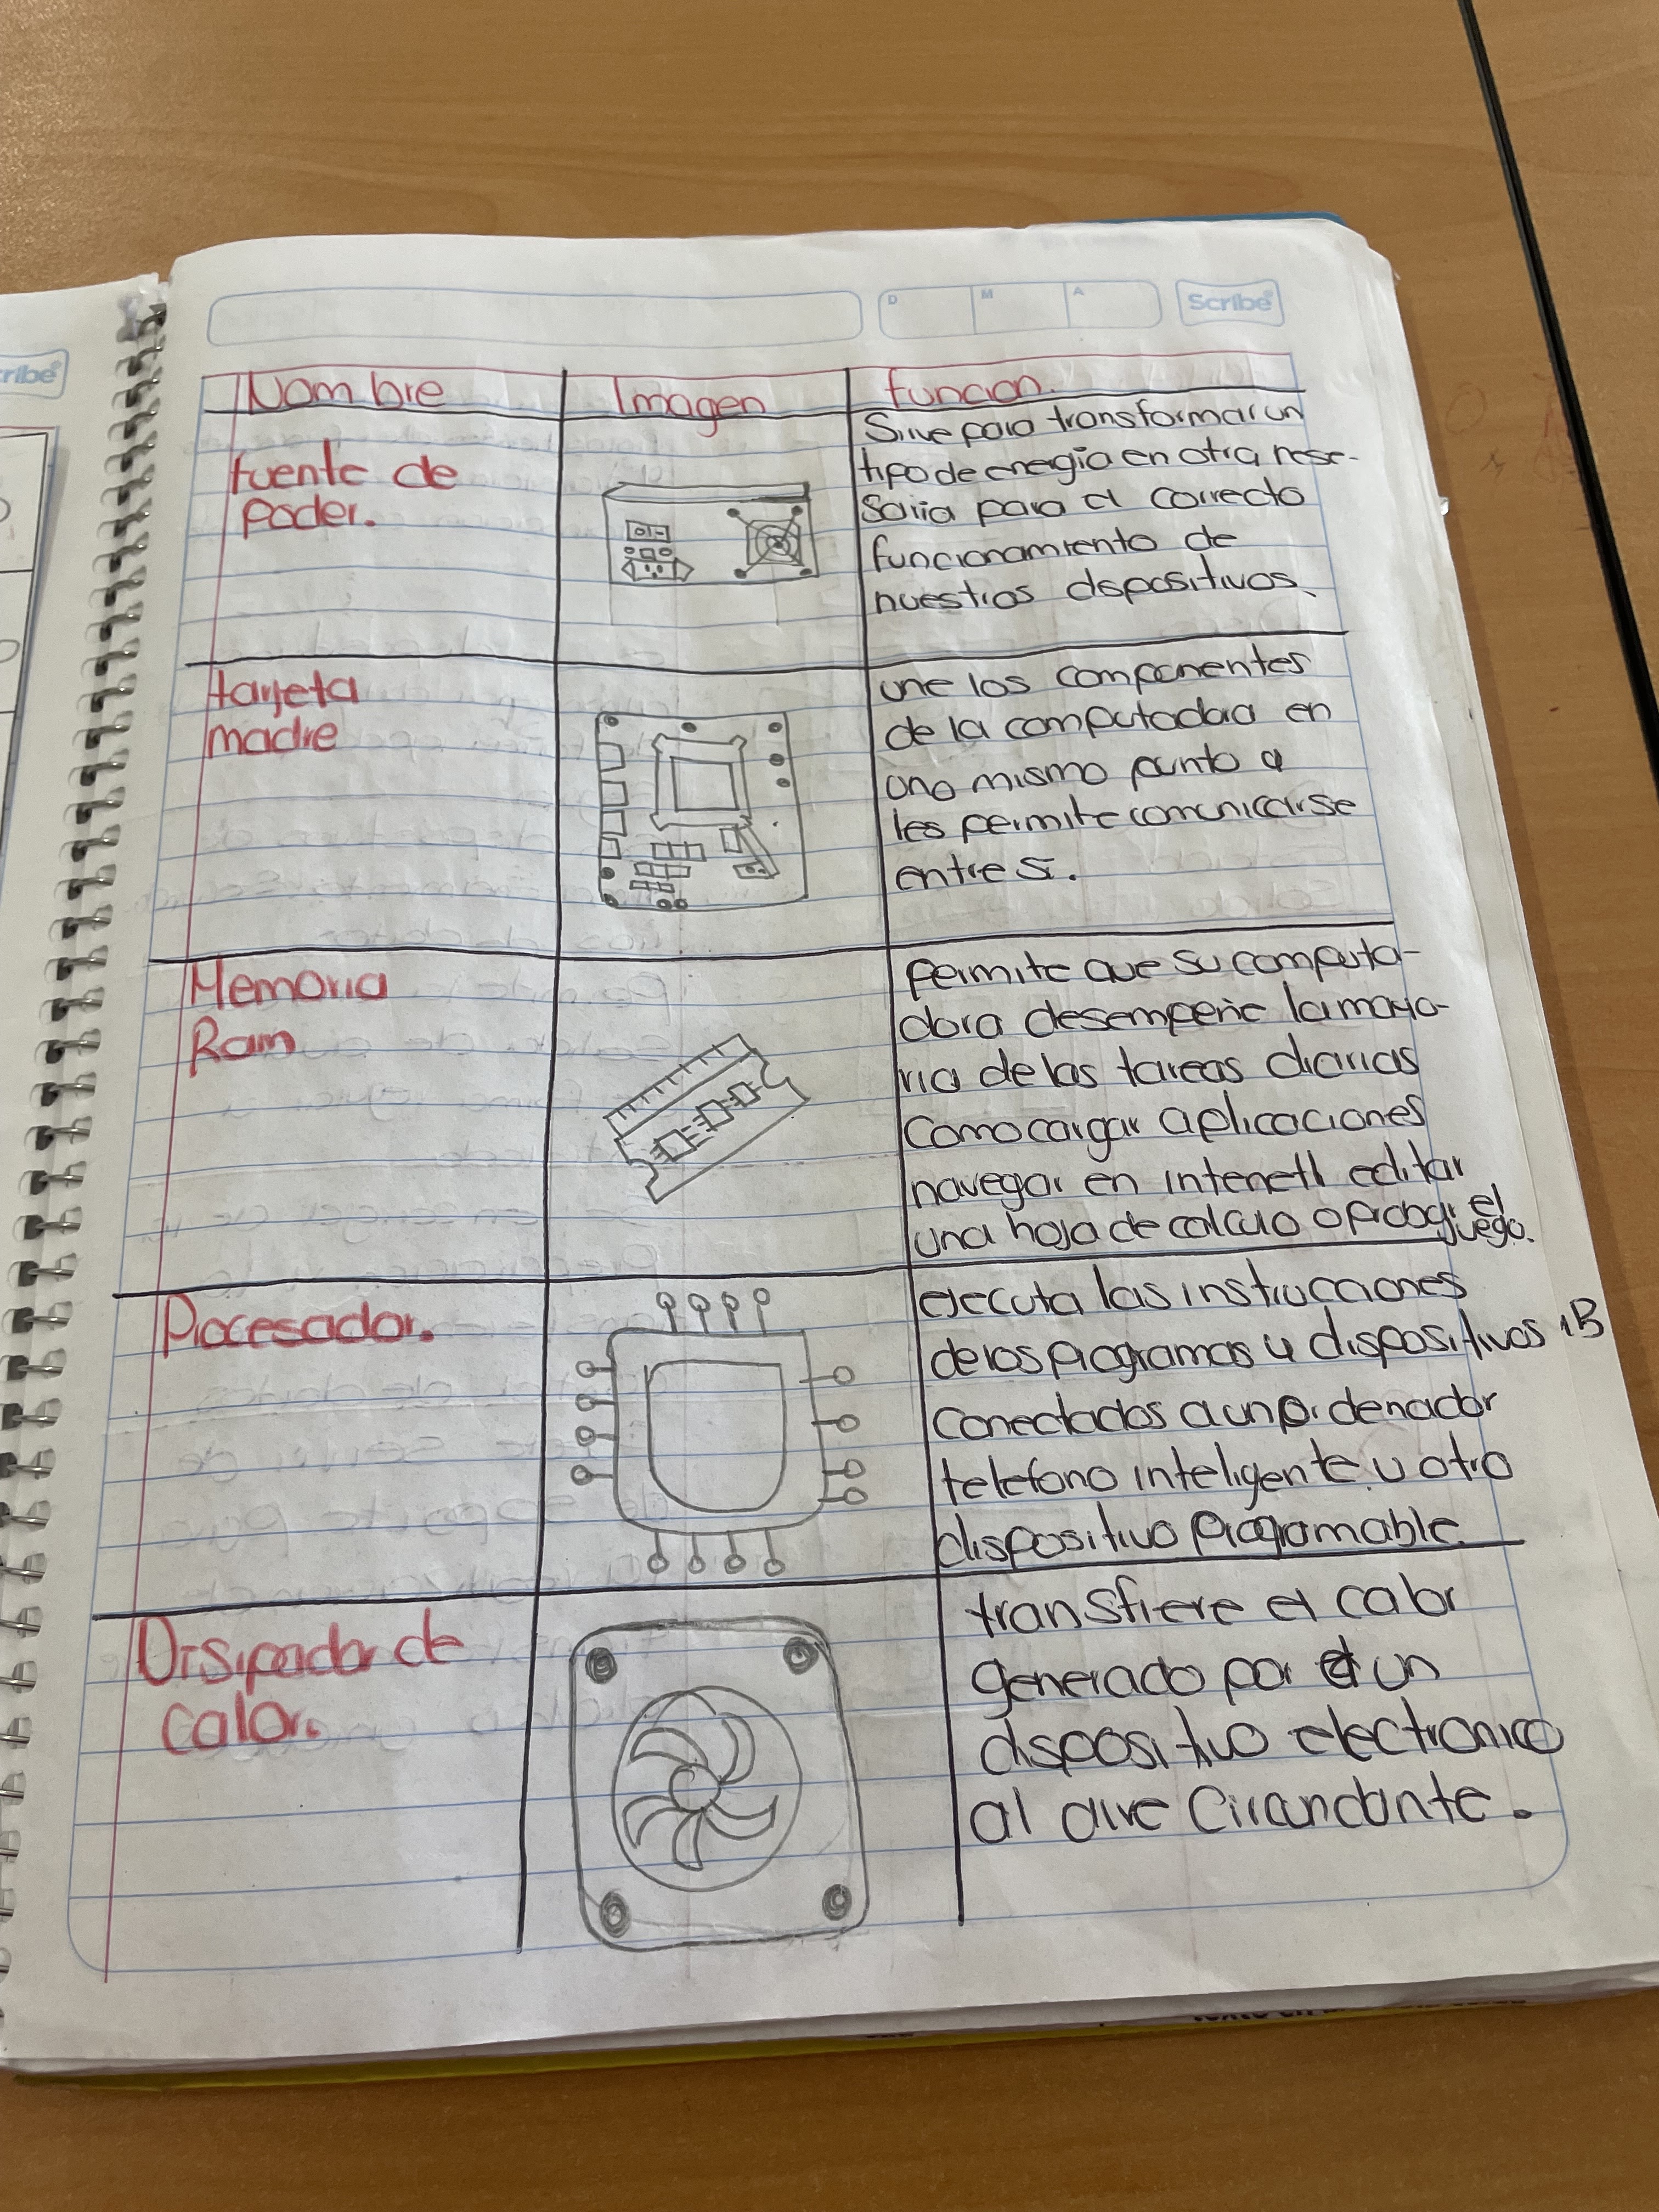 Scribe
D M A
Nombre Imagen funcion.
fuente de
poder.
Sirve para transformar un
tipo de energia en otra nese-
saria para el correcto
funcionamiento de
nuestros dispositivos.
tarjeta
madre
une los componentes
de la computadora en
uno mismo punto y
les permite comunicarse
entre si.
Memoria
Ram
permite que su computa-
dora desempeñe la mayo-
ria de las tareas diarias
como cargar aplicaciones
navegar en internett editar
una hoja de calculo o el
juego.
Procesador.
ejecuta las instrucciones
de los programas y dispositivos
conectados a un ordenador
telefono inteligente u otro
dispositivo programable.
Disipador de
calor.
transfiere el calor
generado por un
dispositivo electronico
al aire Circundante.